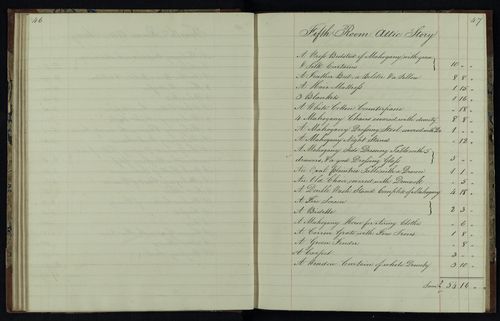 46
47
Fifth Room Attic Story
A Press Bedsted of Mahogany with green
& Silk Curtains 10 - -
A Feather Bed, a Bolster & a Pillow 8 8 -
A Hair Mattress 1 15 -
3 Blankets 1 16 -
A White Cotton Counterpane - 18 -
4 Mahogany Chairs covered with dimity 8 8 -
A Mahogany Dressing Stool covered with Do 1 - -
A Mahogany Night Stand - 12 -
A Mahogany Dressing Table with 5
drawers, & a Dressing Glass 3 - -
An Oval Table with a Drawer 1 1 -
An Old Chair covered with Damask - 5 -
A Double Wash Stand Complete of Mahogany 4 18 -
A Fire Screen
A Bidette 2 3 -
A Mahogany Horse for Airing Clothes - 6 -
A Corron Grate with Fire Irons 1 8 -
A Green Fender - 8 -
A Carpet 3 - -
A Window Curtain of white Dimity 3 10 -
Sum £ 54 16 -